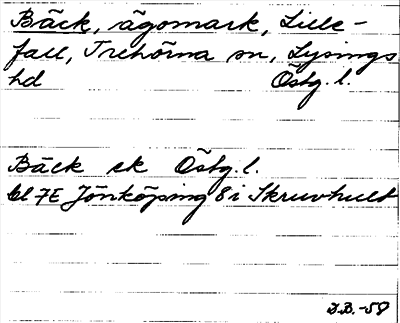 Bäck, ägomark, Lille-
fall, Trehörna sn, Lysings
hd Östg. l.
Bäck ek Östg. l.
bl 7E Jönköping 8 i Skruvhult
J.B. -58